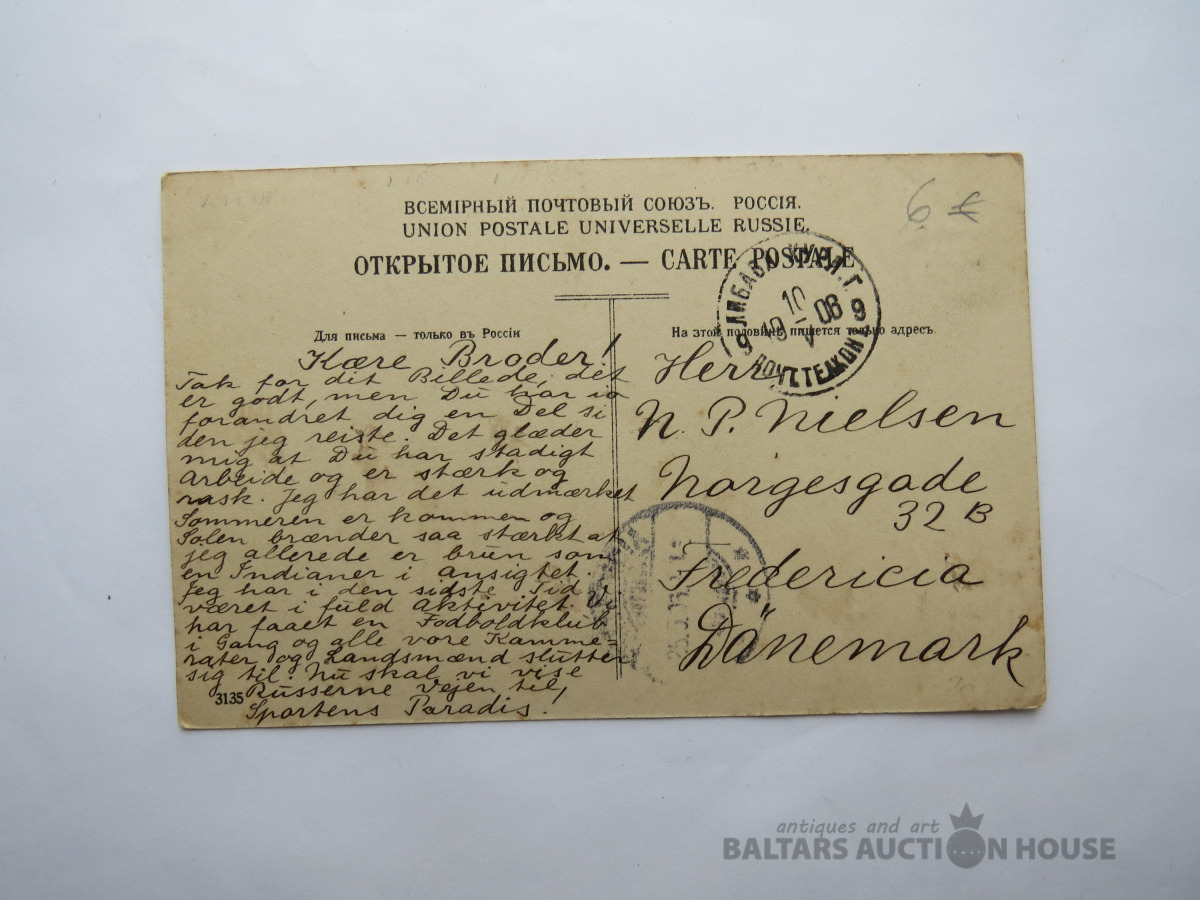 ВСЕМІРНЫЙ ПОЧТОВЫЙ СОЮЗЪ. РОССІЯ.
UNION POSTALE UNIVERSELLE RUSSIE.
ОТКРЫТОЕ ПИСЬМО. — CARTE POSTALE
6 €
ЛИБАВА КУРЛ. Г.
10
10 V 06
9 9
ПОЧТ. ТЕЛ. КОНТ.
Для письма — только въ Россіи
Kære Broder!
Tak for dit Billede, det
er godt, men Du har jo
forandret dig en Del si
den jeg reiste. Det glæder
mig at Du har stadigt
Arbeide og er stærk og
rask. Jeg har det udmærket
Sommeren er kommen og
Solen brænder saa stærkt at
jeg allerede er brun som
en Indianer i ansigtet.
Jeg har i den sidste Tid
været i fuld Aktivitet. Vi
har faaet en Fodboldklub
i Gang og alle vore Kamme-
rater og Landsmænd slutter
sig til. Nu skal vi vise
Russerne Vejen til
Sportens Paradis!
3135
На этой половинѣ пишется только адресъ.
Herr
N. P. Nielsen
Norgesgade
32 B
Fredericia
Dänemark
antiques and art
BALTARS AUCTION HOUSE